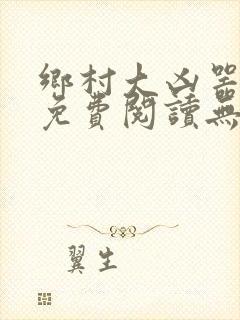 鄉村大凶器
免費閱讀無
翼生